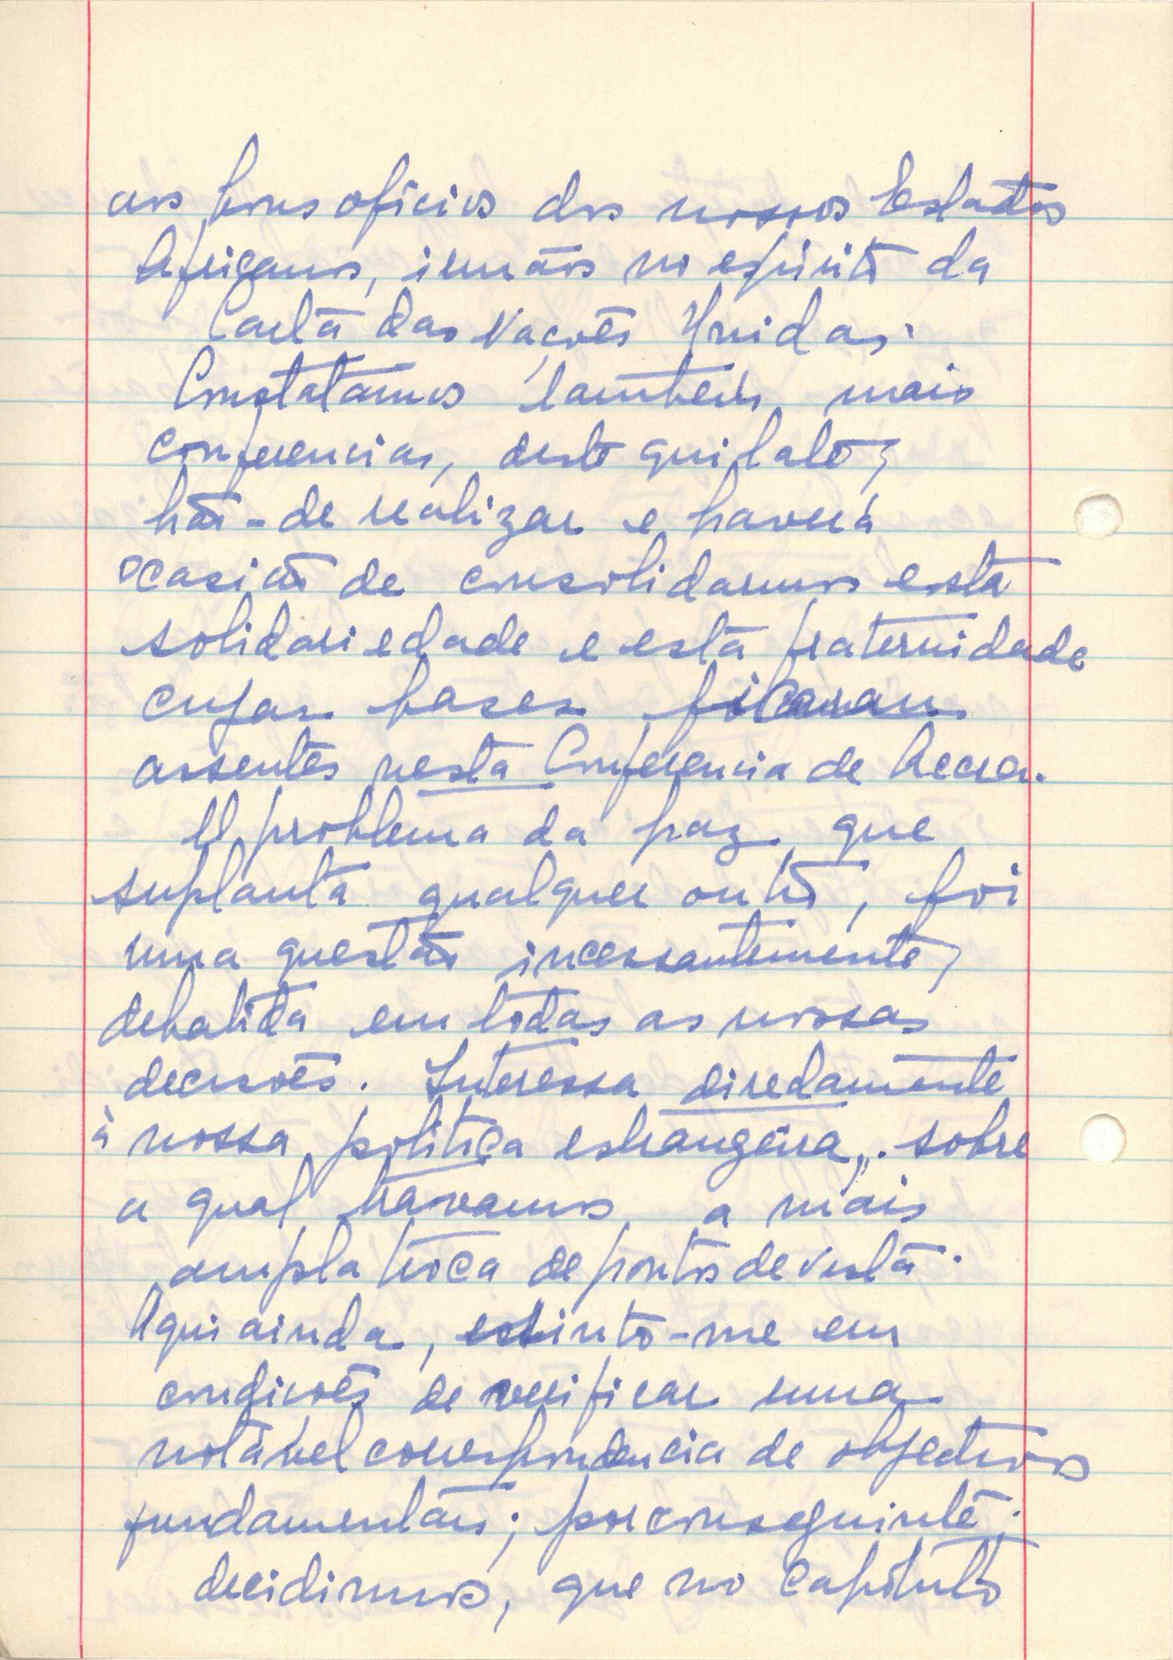 aos bons ofícios dos nossos Estados
Africanos, irmãos no espírito da
Carta das Nações Unidas.
Constatámos também, mais
conferencias, deste quilate,
hão-de realizar e haverá
ocasião de consolidarmos esta
solidariedade e esta fraternidade
cujas bases ficaram
assentes nesta Conferencia de Accra.
O problema da paz, que
suplanta qualquer outro, foi
uma questão incessantemente,
debatida em todas as nossas
decisões. Interessa diredamente
à nossa politica estrangeira, sobre
a qual travamos a mais
ampla troca de pontos de vista.
Aqui ainda, sinto-me em
condições de verificar uma
notável correspondencia de objectivos
fundamentais; por conseguinte,
decidimos, que no capítulo